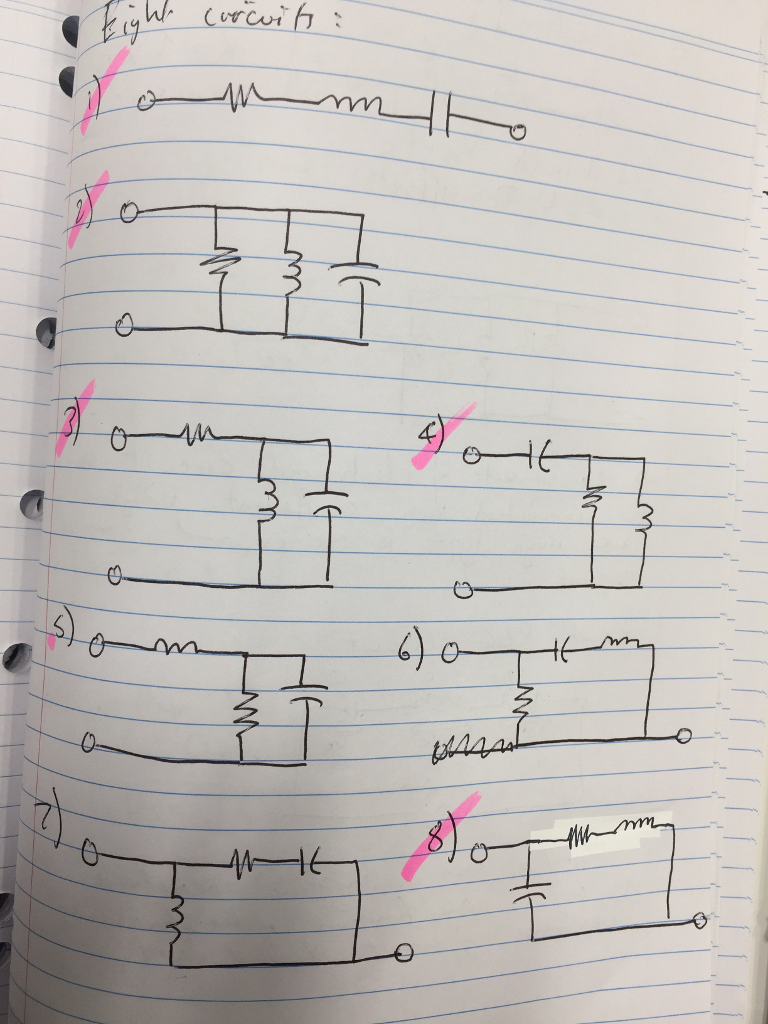 Eight circuits:
1)
2)
3)
4)
5)
6)
7)
8)